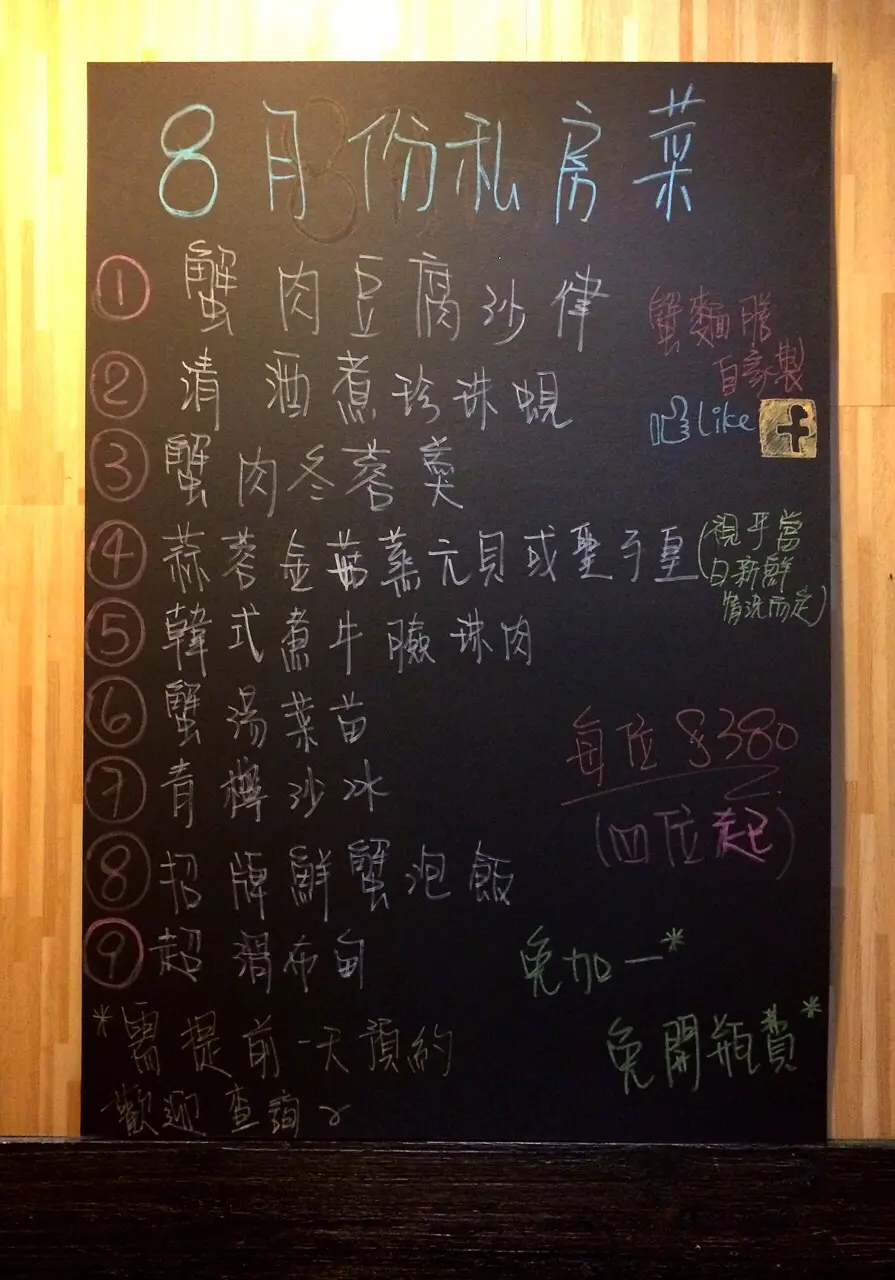 8月份私房菜
① 蟹肉豆腐沙律
蟹麵膳
自家製
② 清酒煮珍珠蜆
like f
③ 蟹肉冬蓉羹
④ 蒜蓉金菇蒸元貝或聖子皇
(視乎當
日新鮮
情況而定)
⑤ 韓式煮牛臉珠肉
⑥ 蟹湯菜苗
每位 $380
⑦ 青檸沙冰
(四位起)
⑧ 招牌鮮蟹泡飯
⑨ 超滑布甸
免加一*
*需提前一天預約
免開瓶費*
歡迎查詢~